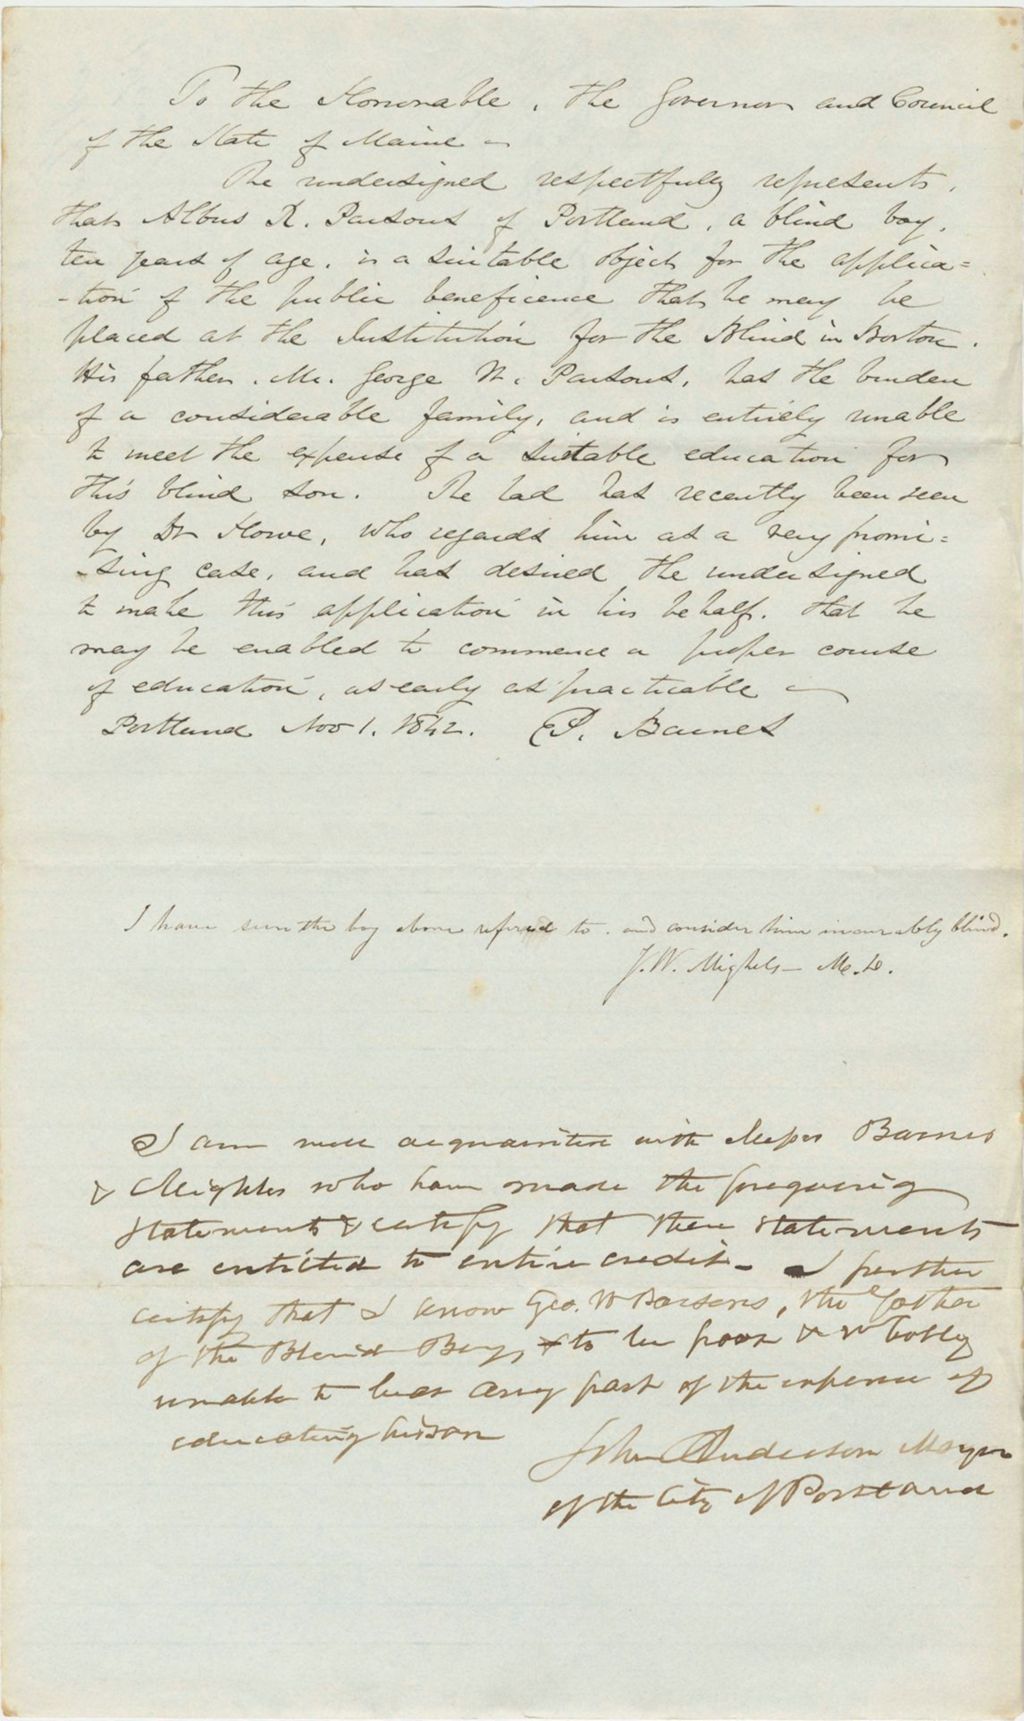 To the Honorable, the Governor and Council
of the State of Maine
The undersigned respectfully represents,
that Albus R. Parsons of Portland, a blind boy,
ten years of age, is a suitable object for the applica=
-tion of the public beneficence that he may be
placed at the Institution for the Blind in Boston.
His father, Mr. George W. Parsons, has the burden
of a considerable family, and is entirely unable
to meet the expense of a suitable education for
this blind son. The lad has recently been seen
by Dr Howe, who regards him as a very promi=
-sing case, and has desired the undersigned
to make this application in his behalf, that he
may be enabled to commence a proper course
of education, as early as practicable
Portland Nov 1. 1842. P. Barnes
I have seen the boy above referred to. and consider him incurably blind.
J. W. Mighels - M. D.
I am well acquainted with Messrs Barnes
& Mighles who have made the foregoing
statements & certify that their statements
are entitled to entire credit - I further
certify that I know Geo. W Parsons, the father
of the Blind Boy, to be poor & wholly
unable to bear any part of the expense of
educating his son
John Anderson Mayor
of the City of Portland